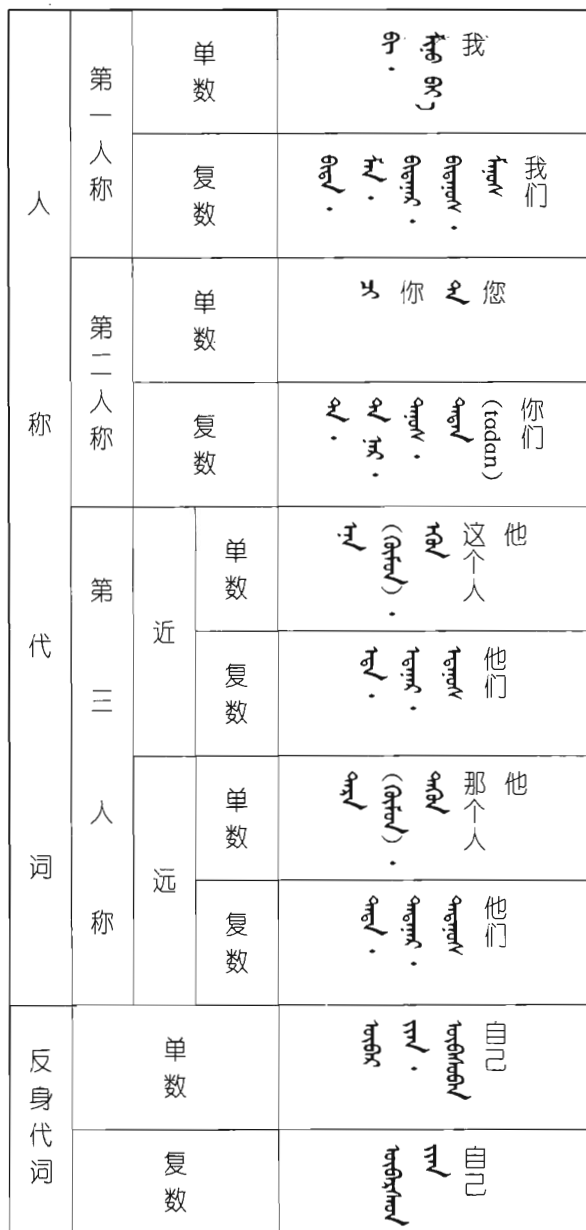 人称代词
第一人称
单数
ᠪᠢ᠂
ᠮᠢᠨᠦ ᠪᠡᠶ᠎ᠡ
我
复数
ᠪᠢᠳᠠ᠂
ᠮᠠᠨ᠂
ᠪᠢᠳᠠᠨᠠᠷ᠂
ᠪᠢᠳᠠᠨᠤᠰ᠂
ᠮᠠᠨᠤᠰ
我们
第二人称
单数
ᠴᠢ
你
ᠲᠠ
您
复数
ᠲᠠ᠂
ᠲᠠ ᠨᠠᠷ᠂
ᠲᠠᠨᠤᠰ᠂
ᠲᠠᠳᠠᠨ
(tadan)
你们
第三人称
近
单数
ᠡᠨᠡ
(ᠬᠦᠮᠦᠨ)᠂
ᠡᠭᠦᠨ
这个人
他
复数
ᠡᠳᠡ᠂
ᠡᠳᠡᠨᠡᠷ᠂
ᠡᠳᠡᠨᠦᠰ
他们
远
单数
ᠲᠡᠷᠡ
(ᠬᠦᠮᠦᠨ)᠂
ᠲᠡᠭᠦᠨ
那个人
他
复数
ᠲᠡᠳᠡ᠂
ᠲᠡᠳᠡᠨᠡᠷ᠂
ᠲᠡᠳᠡᠨᠦᠰ
他们
反身代词
单数
ᠥᠪᠡᠷ
ᠥᠪᠡᠰᠦᠪᠡᠨ
自己
复数
自己